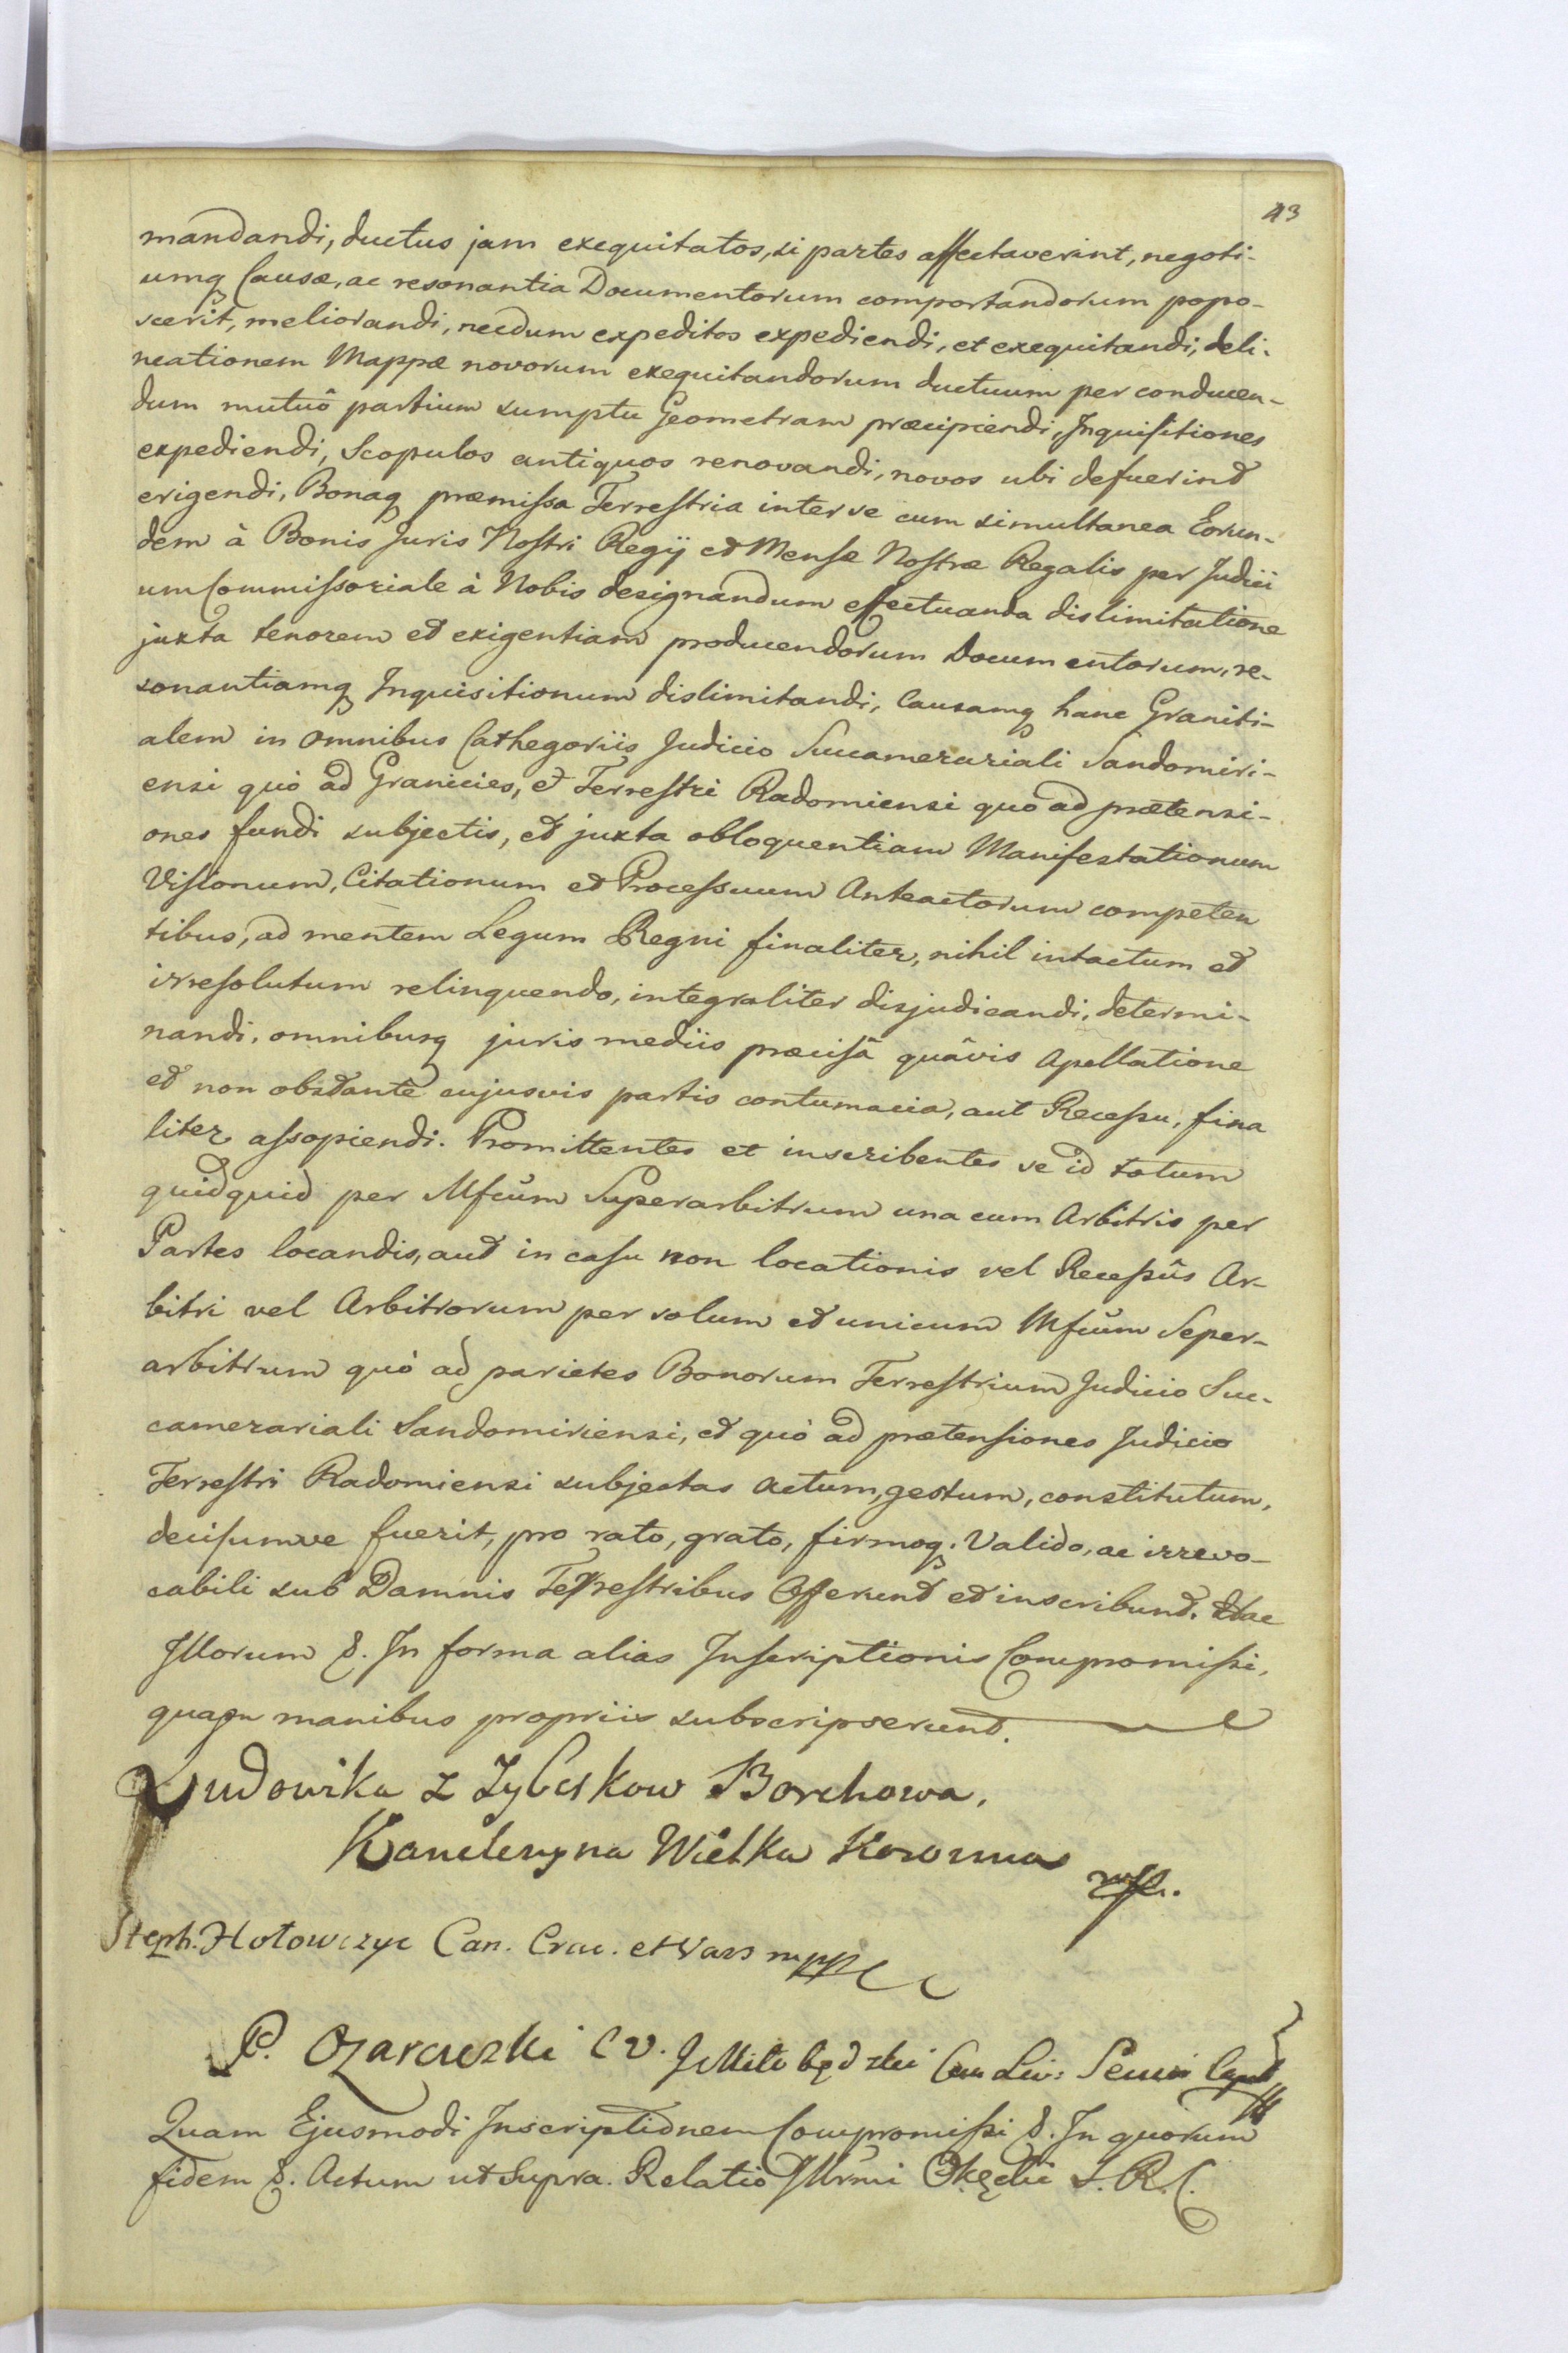 43
mandandi, ductus jam exequitatos, si partes affectaverint, negoti-
umq Causæ, ac resonantia Documentorum comportandorum popo-
scerit, meliorandi, necdum expeditos expediendi, et exequitandi, deli-
neationem Mappæ novorum exequitandorum ductuum per conducen-
dum mutuô partium sumptu Geometram præcipiendi, Inquisitiones
expediendi, Scopulos antiquos renovandi, novos ubi defuerint
erigendi, Bonaq præmissa Terrestria inter se cum simultanea Eorun-
dem à Bonis Juris Nostri Regij et Mensæ Nostræ Regalis per Judici
um Commissoriale à Nobis designandum effectuanda dislimitatione
juxta tenorem et exigentiam producendorum Documentorum, re-
sonantiamq Inquisitionum dislimitandi, Causamq hanc Graniti-
alem in omnibus Cathegoriis Judicio Succamerariali Sandomiri-
ensi quò ad Granicies, et Terrestri Radomiensi quo ad prætensi-
ones fundi subjectis, et juxta obloquentiam Manifestationum
Visionum, Citationum et Processuum Anteactorum competen
tibus, ad mentem Legum Regni finaliter, nihil intactum et
irresolutum relinquendo, integraliter disjudicandi, determi-
nandi, omnibusq juris mediis præcisâ quâvis Apellatione
et non obstante cujusvis partis contumacia, aut Recessu, fina
liter assopiendi. Promittentes et inscribentes se id totum
quidquid per Mfcum Superarbitrum una cum Arbitris per
Partes locandis, aut in casu non locationis vel Recessûs Ar-
bitri vel Arbitrorum per solum et unicum Mfcum Seper-
arbitrum quò ad parietes Bonorum Terrestrium Judicio Suc-
camerariali Sandomiriensi, et quò ad prætensiones Judicio
Terrestri Radomiensi subjectas actum, gestum, constitutum,
decisumve fuerit, pro rato, grato, firmoq. Valido, ac irrevo-
cabili sub Damnis Terrestribus Offerunt et inscribunt. Hac
Illorum &. In forma alias Inscriptionis Compromissi,
quam manibus propriis subscripserunt.
Ludowika z Zyberkow Borchowa,
Kanclerzyna Wielka Koronna
mp.
Steph. Hołowczyc Can. Crac. et Vars mpp
P. Ożarowski C V. J Miłobędzki Can Liv:
Quam Ejusmodi Inscriptionem Compromissi &. In quorum
fidem &. Actum ut Supra. Relatio Illrmi Okęcki S. R. C.